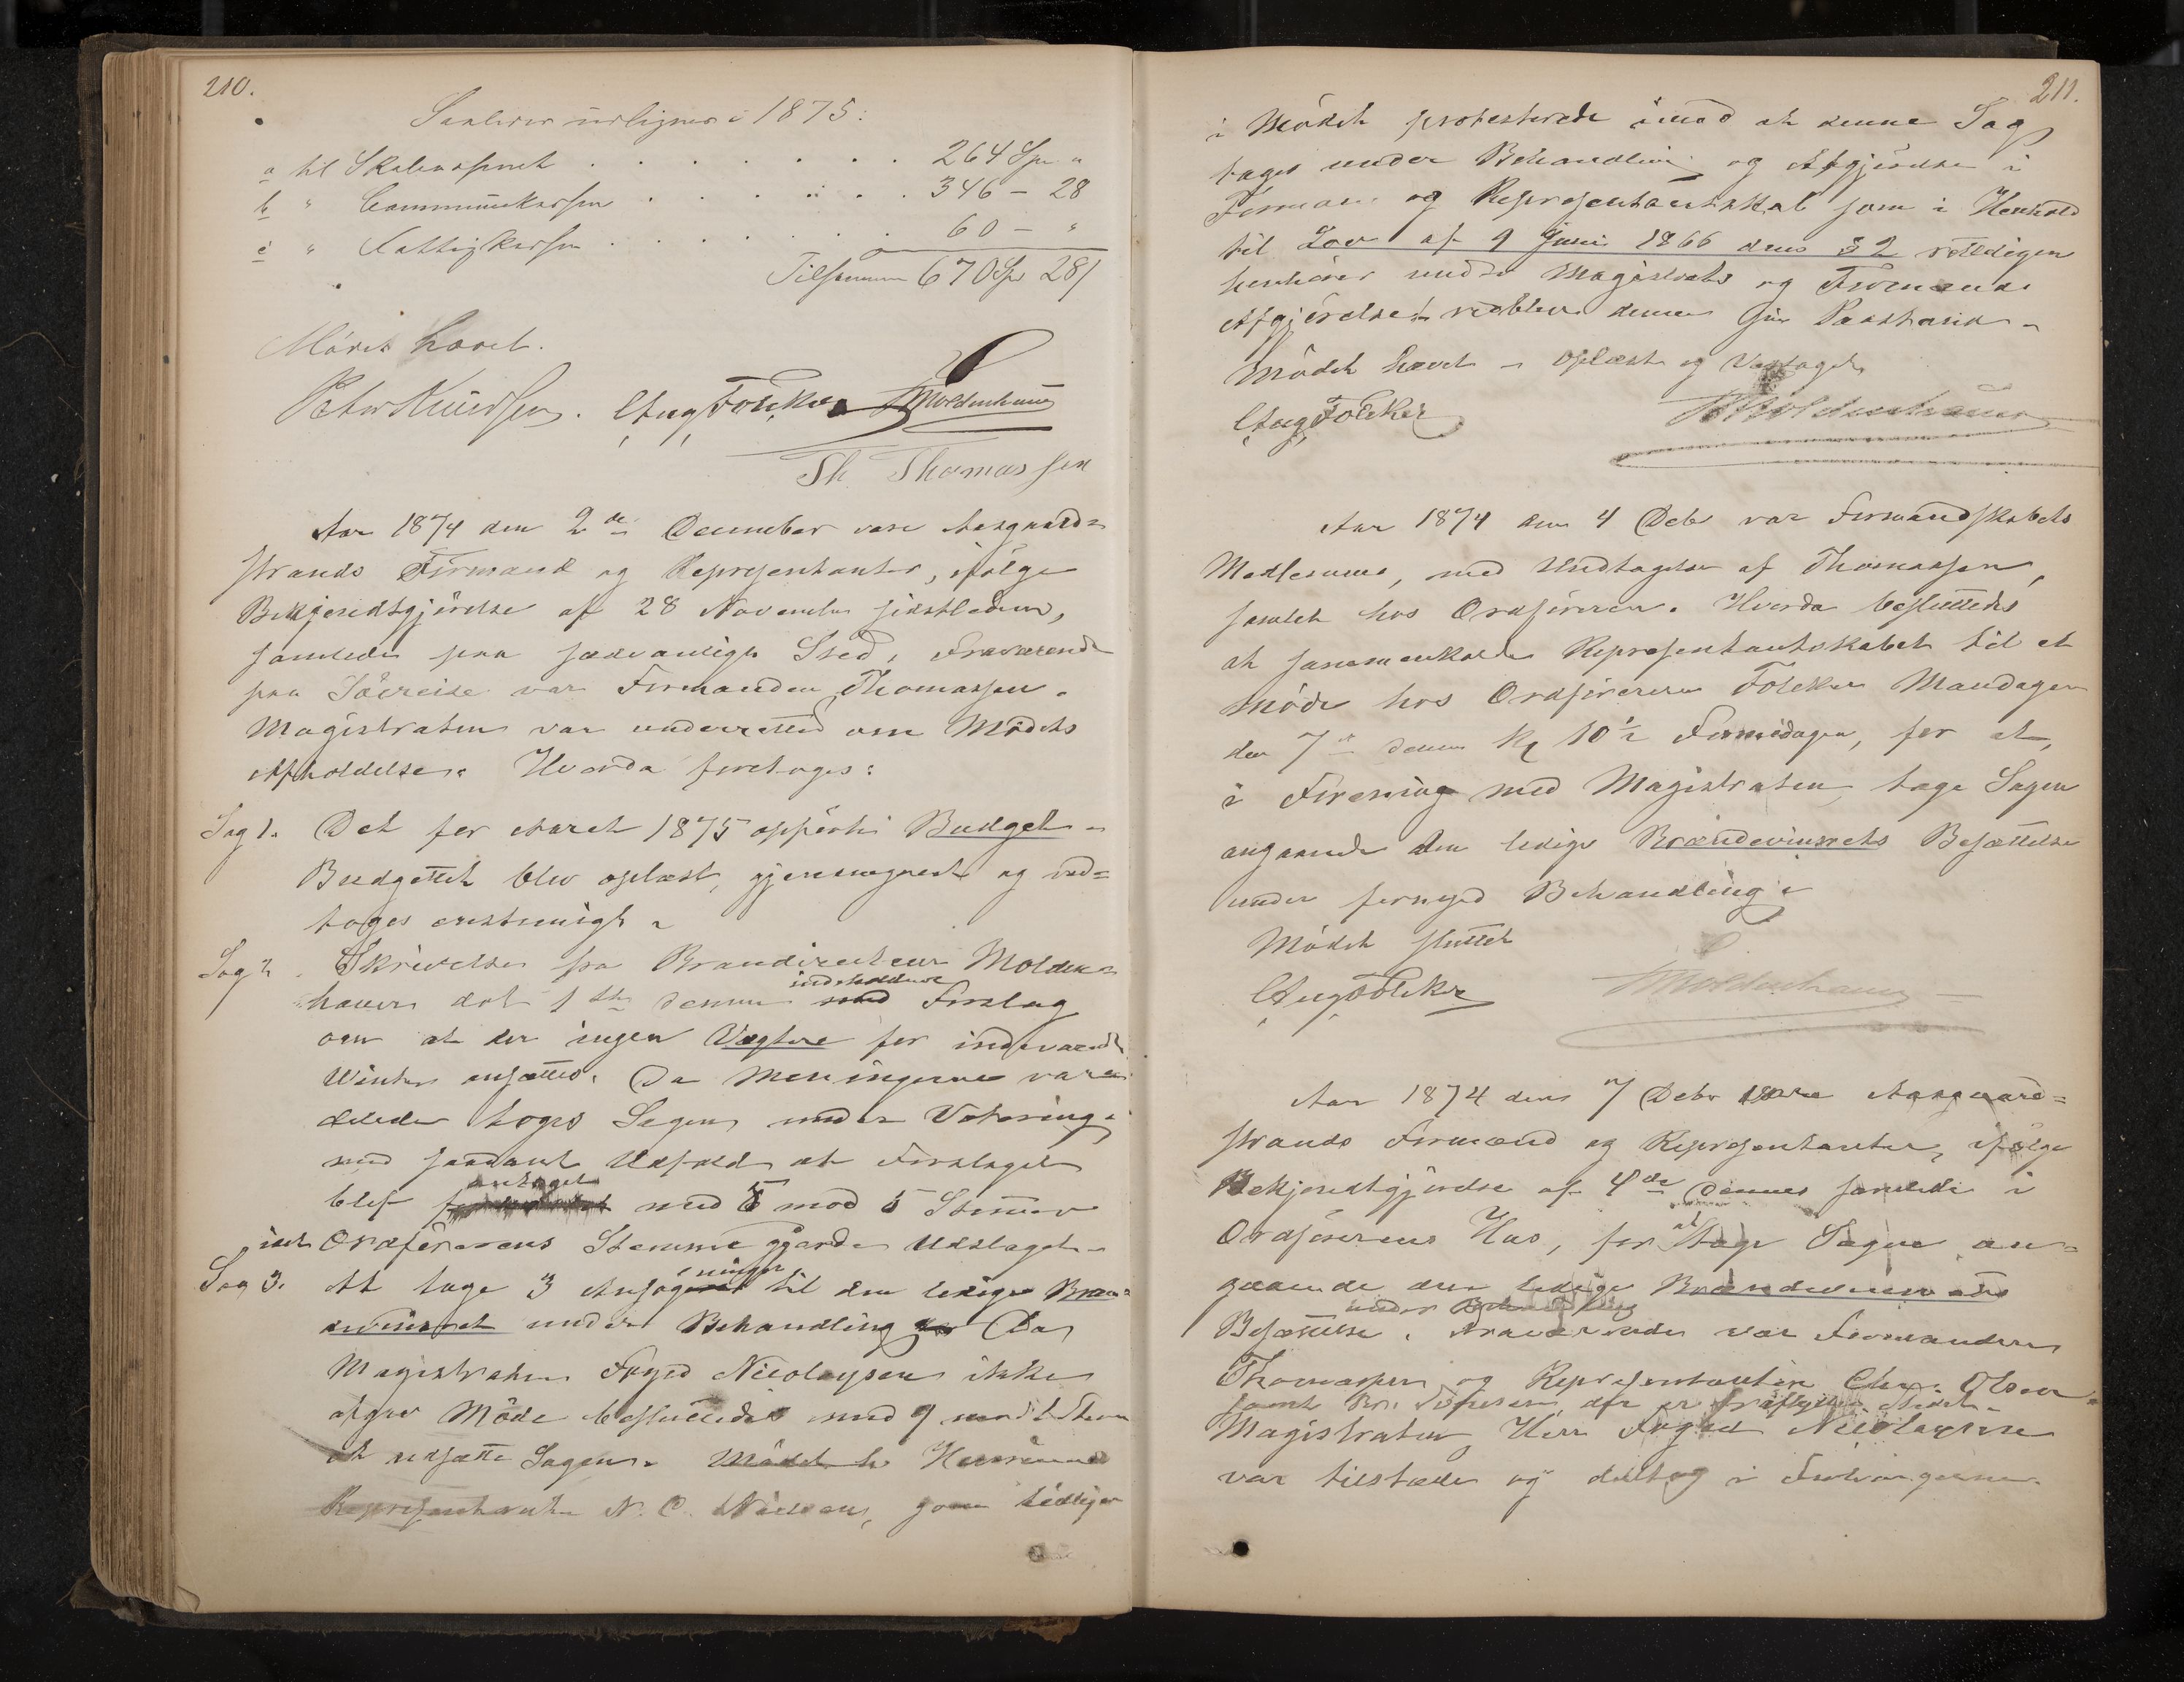 210.
Saaledes udlignes i 1875:
a til Skolevæsenet . . . . . . . 264 Spd "
b " Communekassen . . . . . . 346 – 28
c " Fattigkassen . . . . . . . 60 – "
Tilsammen 670 Spd 28/
Mödet hævet.
Peter Knudsen. C Aug Fölcker Moldenhauer
Th Thomassen
Aar 1874 den 2de December vare Aasgaard=
strands Formænd og Repræsentanter, ifølge
Bekjendtgjörelse af 28 November sidstleden,
samlede paa sædvanligt Sted, Fraværende
paa Söreise var Formanden Thomassen.
Magistraten var underrettet om Mödets
Afholdelse. Hvorda foretoges:
Sag 1. Det for Aaret 1875 opförte Budget.
Budgettet blev oplæst, gjennemgaaet og ved=
toges enstemigt.
Sag 2. Skrivelse fra Branddirecteur Molden=
hauer dat 1ste dennes med indeholdende Forslag
om at der ingen Vægtere for indeværende
Winter ansættes. Da Meningerne vare
deelede toges Sagen under Votering
med saadant Udfald at Forslaget
blef antaget med 5 mod 5 Stemmer
idet Ordförerens Stemme gjorde Udslaget.
Sag 3. At tage 3 Ansögninger til den ledige Bræn=
devinsret under Behandling Da
Magistraten Foged Nicolaysen ikke
afgav Möde besluttedes med 9 mod 1 Stemme
at udsætte Sagen. Mödet h
Repræsentanten N. C. Nielsen, som tidligere
211.
i Mödet protesterede imod at denne Sag
toges under Behandling og Afgjörelse i
Formands og Repræsentantskab som i Henhold
til Lov af 9 Juni 1866 dens § 2 retteligen
henhörer under Magistrats og Formænds
Afgjörelse, vedblev denne sin Paastand.
Mödet hævet – Oplæst og Vedtaget
C Aug Fölcker Moldenhauer
Aar 1874 den 4 Debr var Formandskabets
Medlemmer, med Undtagelse af Thomassen,
samlet hos Ordföreren. Hvorda besluttedes
at sammenkalde Repræsentantskabet til et
Möde hos Ordföreren Fölcker Mandagen
den 7de dennes Kl 10½ Formidagen, for at,
i Forening med Magistraten, tage Sagen
angaaende den ledige Brændevinsrets Besættelse
under fornyed Behandling.
Mödet sluttet
C Aug Fölcker Moldenhauer
Aar 1874 den 7 Debr vare Aasgaard=
strands Formænd og Repræsentanter, ifølge
Bekjendtgjörelse af 4de dennes samlede i
Ordförerens Hus, for at tage Sagen an=
gaaende den ledige Brændevinsrets
Besættelse under Behandling. Fraværende var Formanden
Thomassen og Repræsentanten Chr. Olsen
samt der er fraflyttet Stedet.
Magistraten Herr Foged Nicolaysen
var tilstede og deltog i